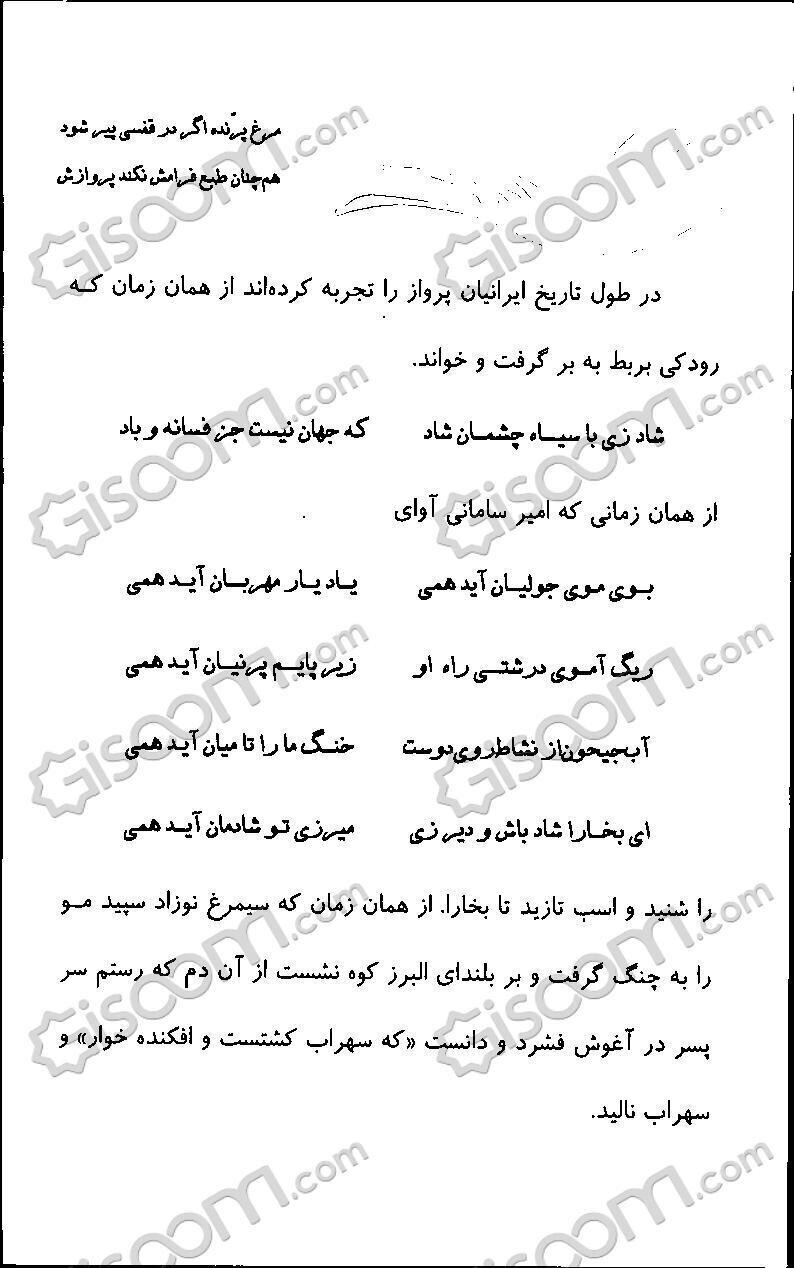 مرغ پرّنده اگر در قفسی پیر شود
هم‌چنان طبع فرامش نکند پروازش
در طول تاریخ ایرانیان پرواز را تجربه کرده‌اند از همان زمان کـه
رودکی بربط به بر گرفت و خواند.
شاد زی با سیـاه چشمـان شاد که جهان نیست جز فسانه و باد
از همان زمانی که امیر سامانی آوای
بـوی موی جولیـان آید همی یـاد یـار مهربـان آیـد همی
ریگ آمـوی درشتـی راه او زیر پایـم پرنیـان آیـد همی
آب جیحون از نشاط روی دوست خنـگ ما را تا میان آیـد همی
ای بخـارا شاد باش و دیر زی میر زی تـو شادمان آیـد همی
را شنید و اسب تازید تا بخارا. از همان زمان که سیمرغ نوزاد سپید مـو
را به چنگ گرفت و بر بلندای البرز کوه نشست از آن دم که رستم سر
پسر در آغوش فشرد و دانست «که سهراب کشتست و افکنده خوار» و
سهراب نالید.
Giscoom.com